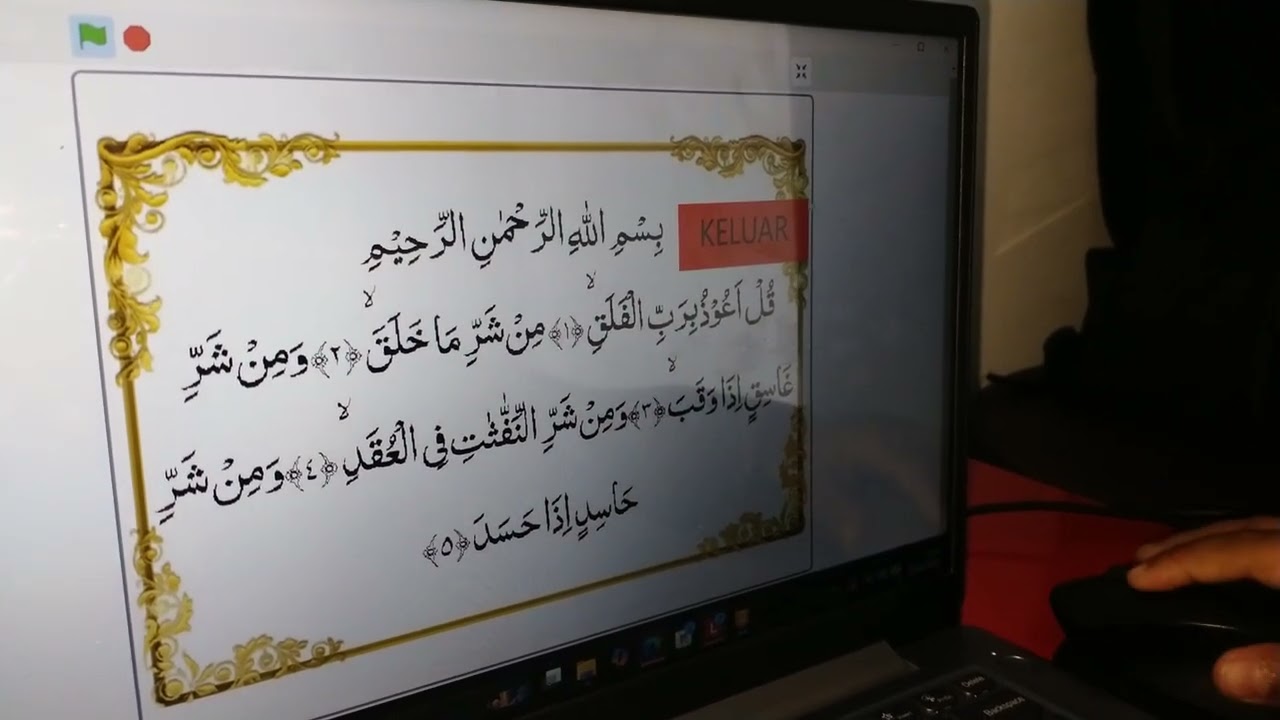 KELUAR
بِسْمِ اللّٰهِ الرَّحْمٰنِ الرَّحِيْمِ
قُلْ اَعُوْذُ بِرَبِّ الْفَلَقِۙ ﴿١﴾ مِنْ شَرِّ مَا خَلَقَۙ ﴿٢﴾ وَمِنْ شَرِّ
غَاسِقٍ اِذَا وَقَبَۙ ﴿٣﴾ وَمِنْ شَرِّ النَّفّٰثٰتِ فِى الْعُقَدِۙ ﴿٤﴾ وَمِنْ شَرِّ
حَاسِدٍ اِذَا حَسَدَ ﴿٥﴾
Delete
Backspace